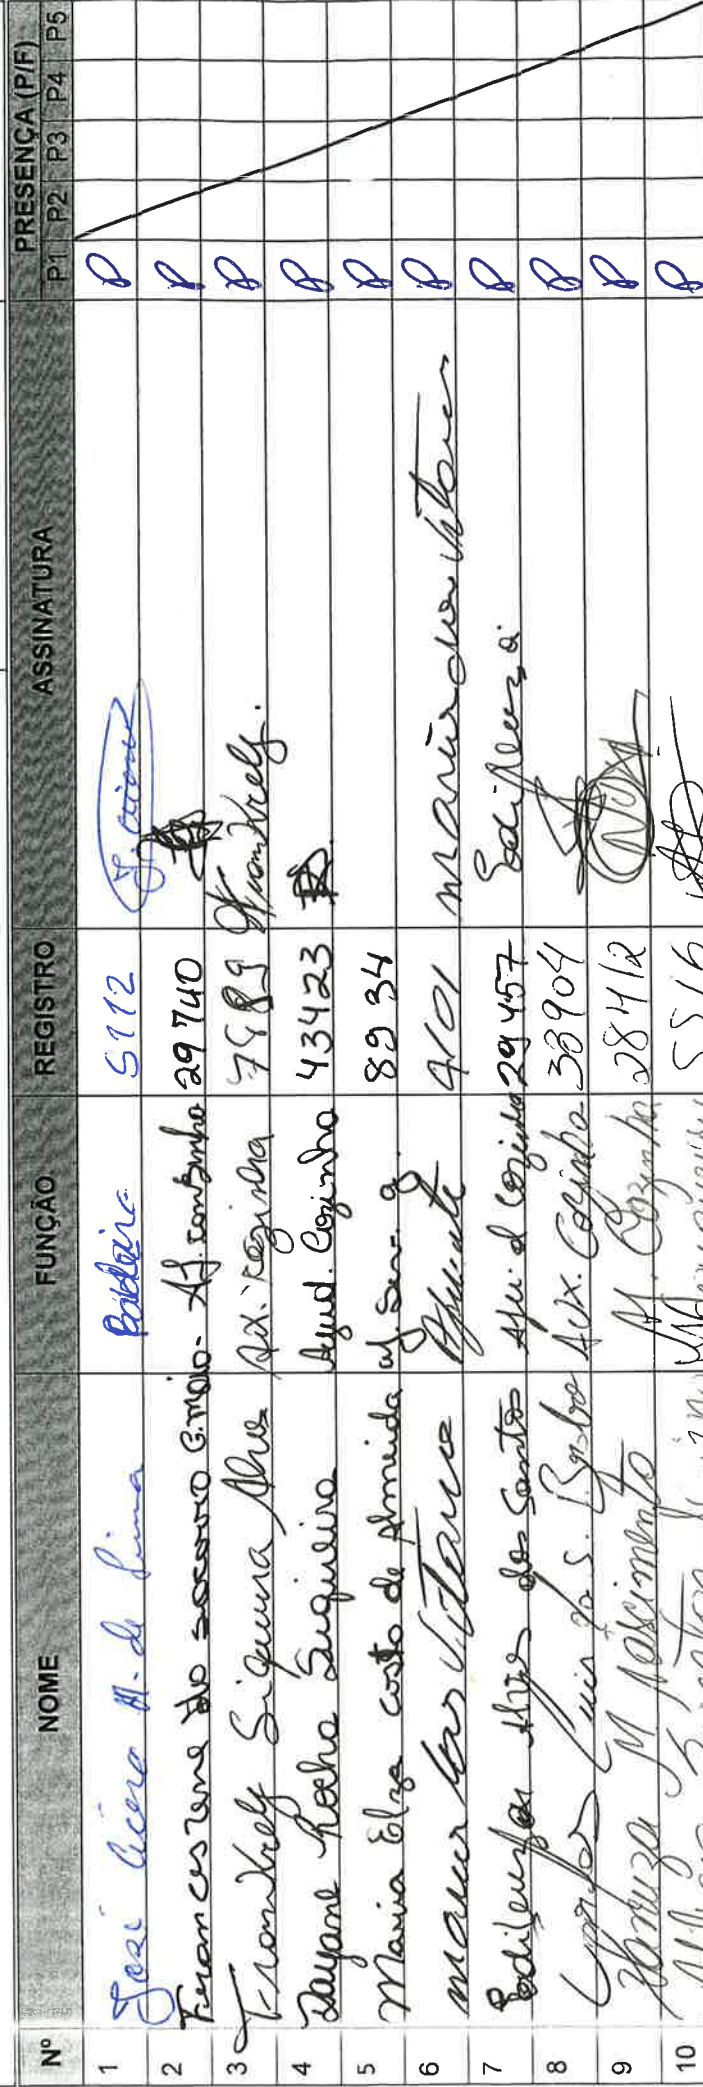 Nº NOME FUNÇÃO REGISTRO ASSINATURA PRESENÇA (P/F)
P1 P2 P3 P4 P5
1 José Cicero M. de Lima Padeiro 5112 P
2 Francisrene do socorro G. maio - Aj. conzinha 29740 P
3 Frankrely Siqueira Alves Aux. cozinha 7489 Frankrely. P
4 Dayane Rocha Siqueira Ajud. Cozinha 43423 P
5 Maria Elza costa de Almeida aj Serv. g. 8934 P
6 Vitoria 4101 P
7 Edileuza Alves dos Santos Aju. d Cozinha 29457 Edileuza P
8 Carlos Luis S. Aux. Cozinha 33904 P
9 M Nascimento Cozinha 28412 P
10 5516 P